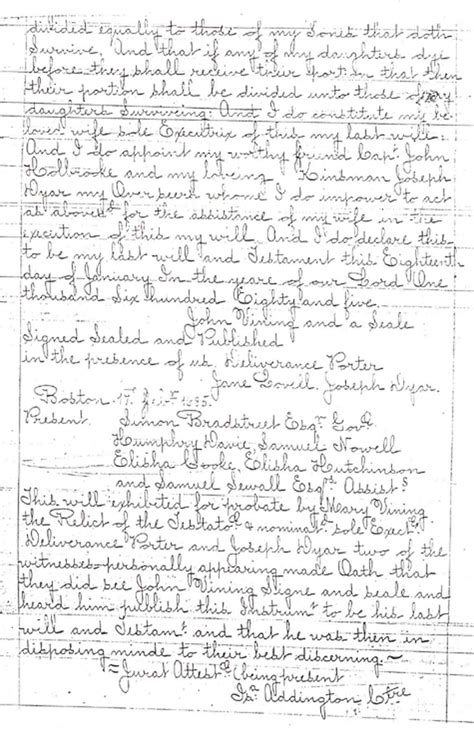 divided equally to those of my Sones that doth
Survive, And that if any of my daughters dye
before they shall receive their portion that then
their portion shall be divided unto those of my
daughters Surviveing: And I do constitute my be
loved wife sole Execultrix of this my last will:
And I do appoint my worthy friend Capt. John
Holbrooke and my loveing Kinsman Joseph
Dyar my Overseers whome I do impower to act
as abovesd for the assistance of my wife in the
execution of this my will. And I do declare this
to be my last will and Testament this Eighteenth
day of January In the yeare of our Lord One
thousand Six hundred Eighty and five.
John Vining and a Seale
Signed Sealed and Published
in the presence of us. Deliverance Porter
Jane Lovell. Joseph Dyar.
Boston. 17 1685.
Present. Simon Bradstreet Esqr. Govr.
Humphry Davie, Samuel Nowell
Elisha Cooke, Elisha Hutchinson
and Samuel Sewall Esqrs. Assists
This will exhibited for probate by Mary Vining
the Relict of the Testator & nominatd. sole Execx.
Deliverance Porter and Joseph Dyar two of the
witnesses personally appearing made Oath that
they did see John Vining Signe and seale and
heard him publish this Instrumt. to be his last
will and Testamt. and that he was then in
disposing minde to their best discerning. ~
= Jurat Attestr. (being present
Isa. Addington Ctre